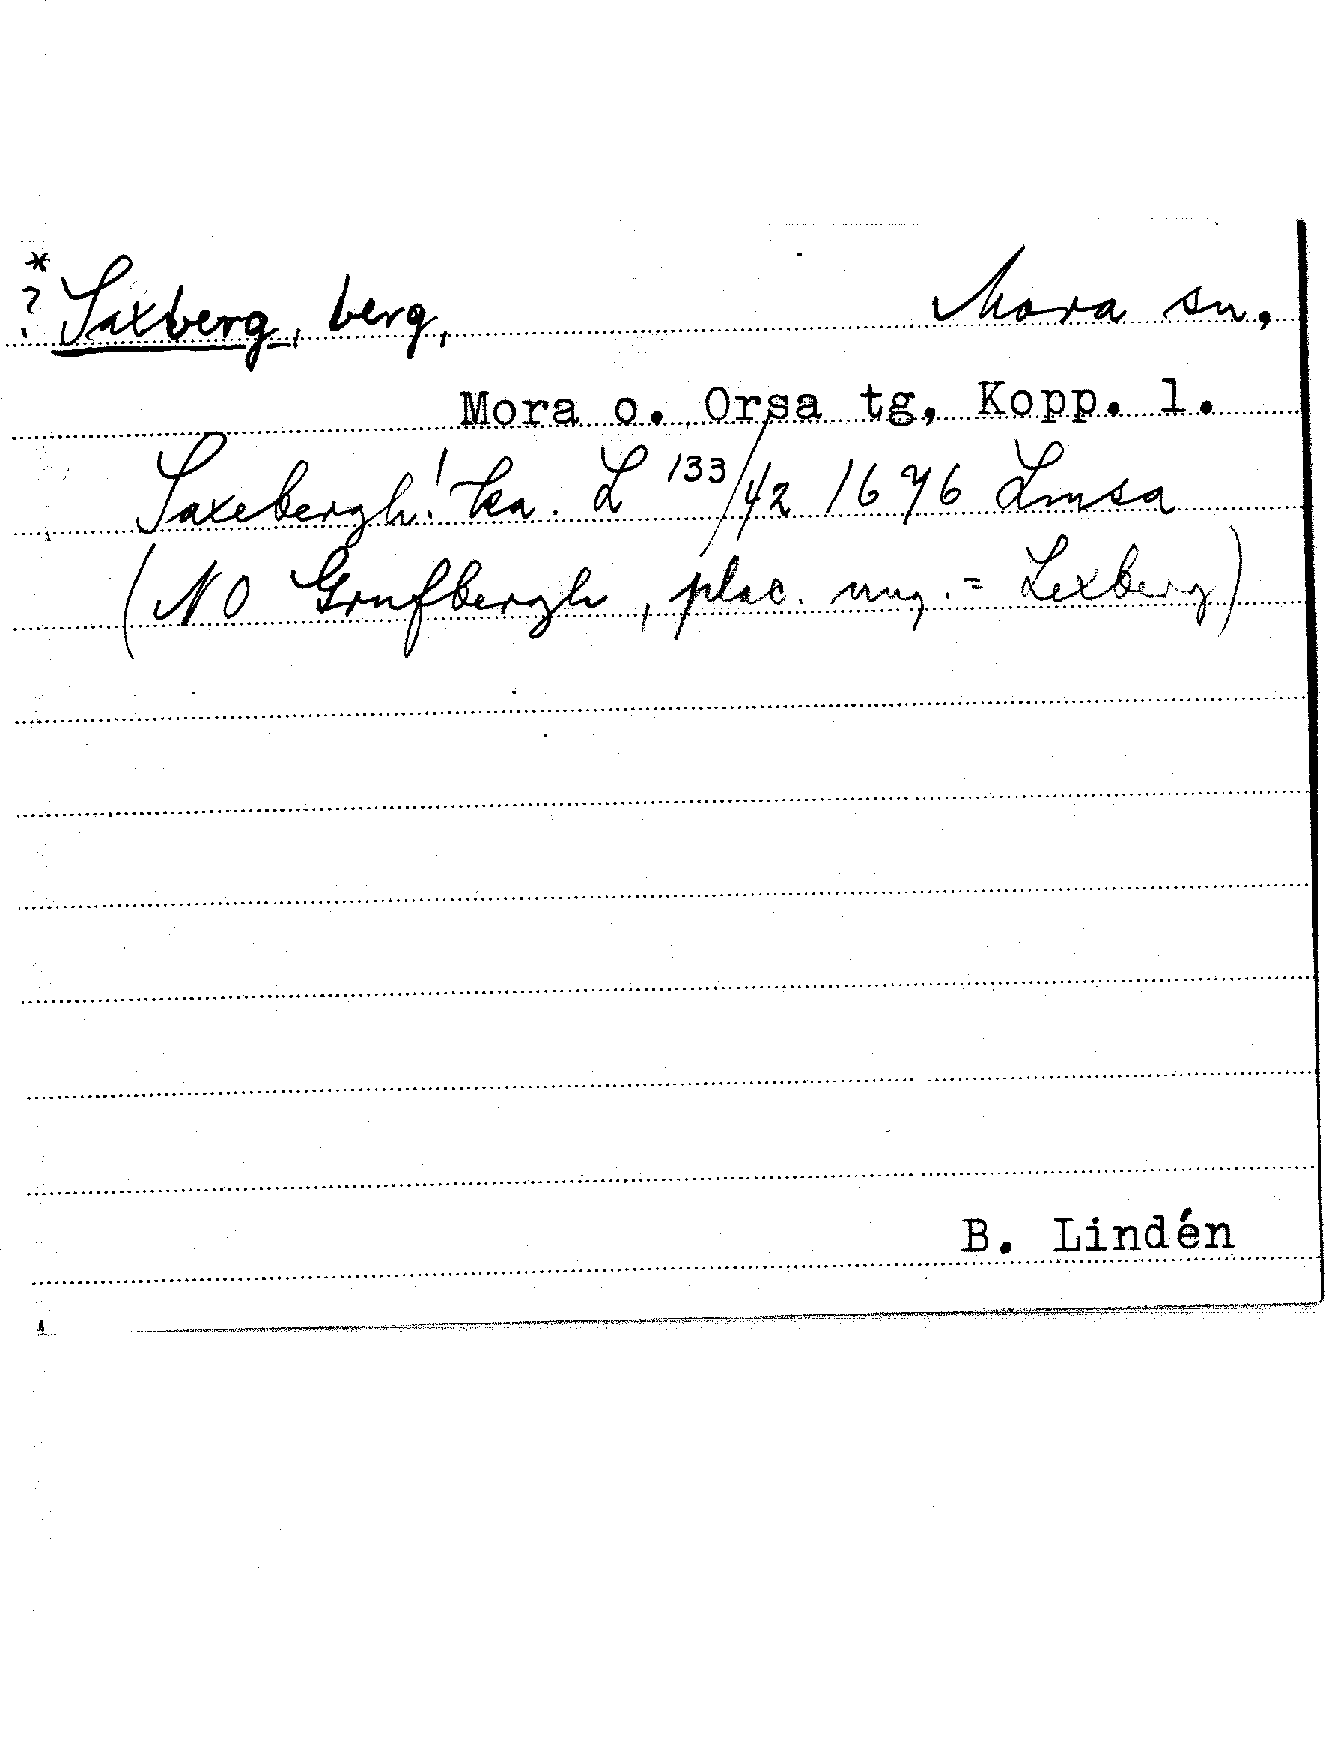 *
? Saxberg, berg, Mora sn,
Mora o. Orsa tg, Kopp. l.
Saxebergh! ka. L 133/42 1676 Lmsa
(NO Grufbergh, plac. ung. = Lexberg)
B. Lindén